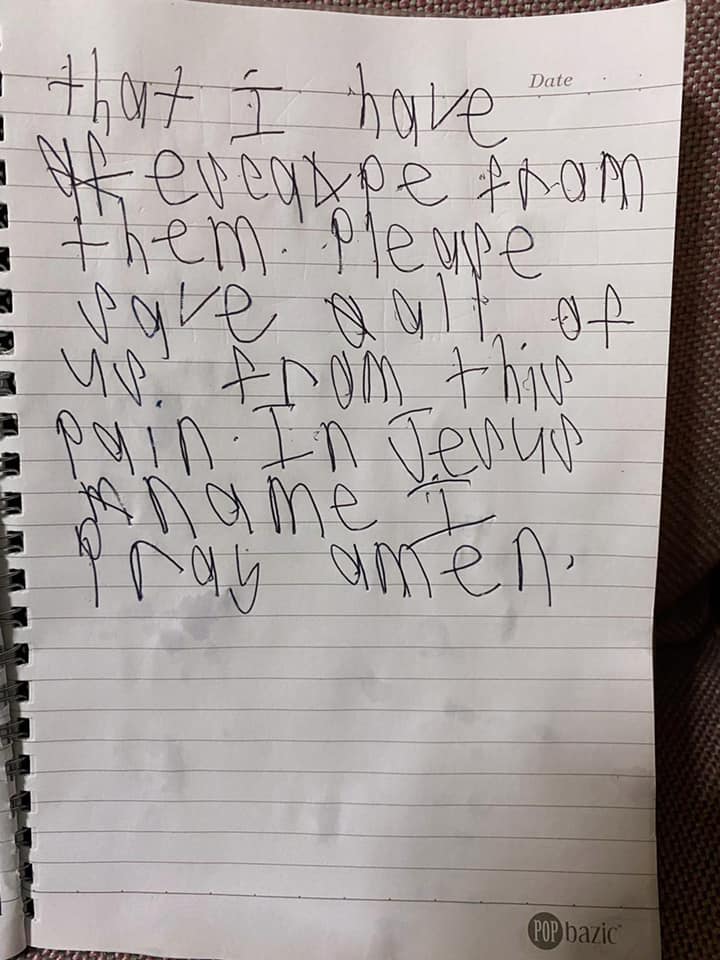 Date
that I have
escape from
them. Please
save all of
us from this
pain. In Jesus
name I
pray amen.
POP bazic